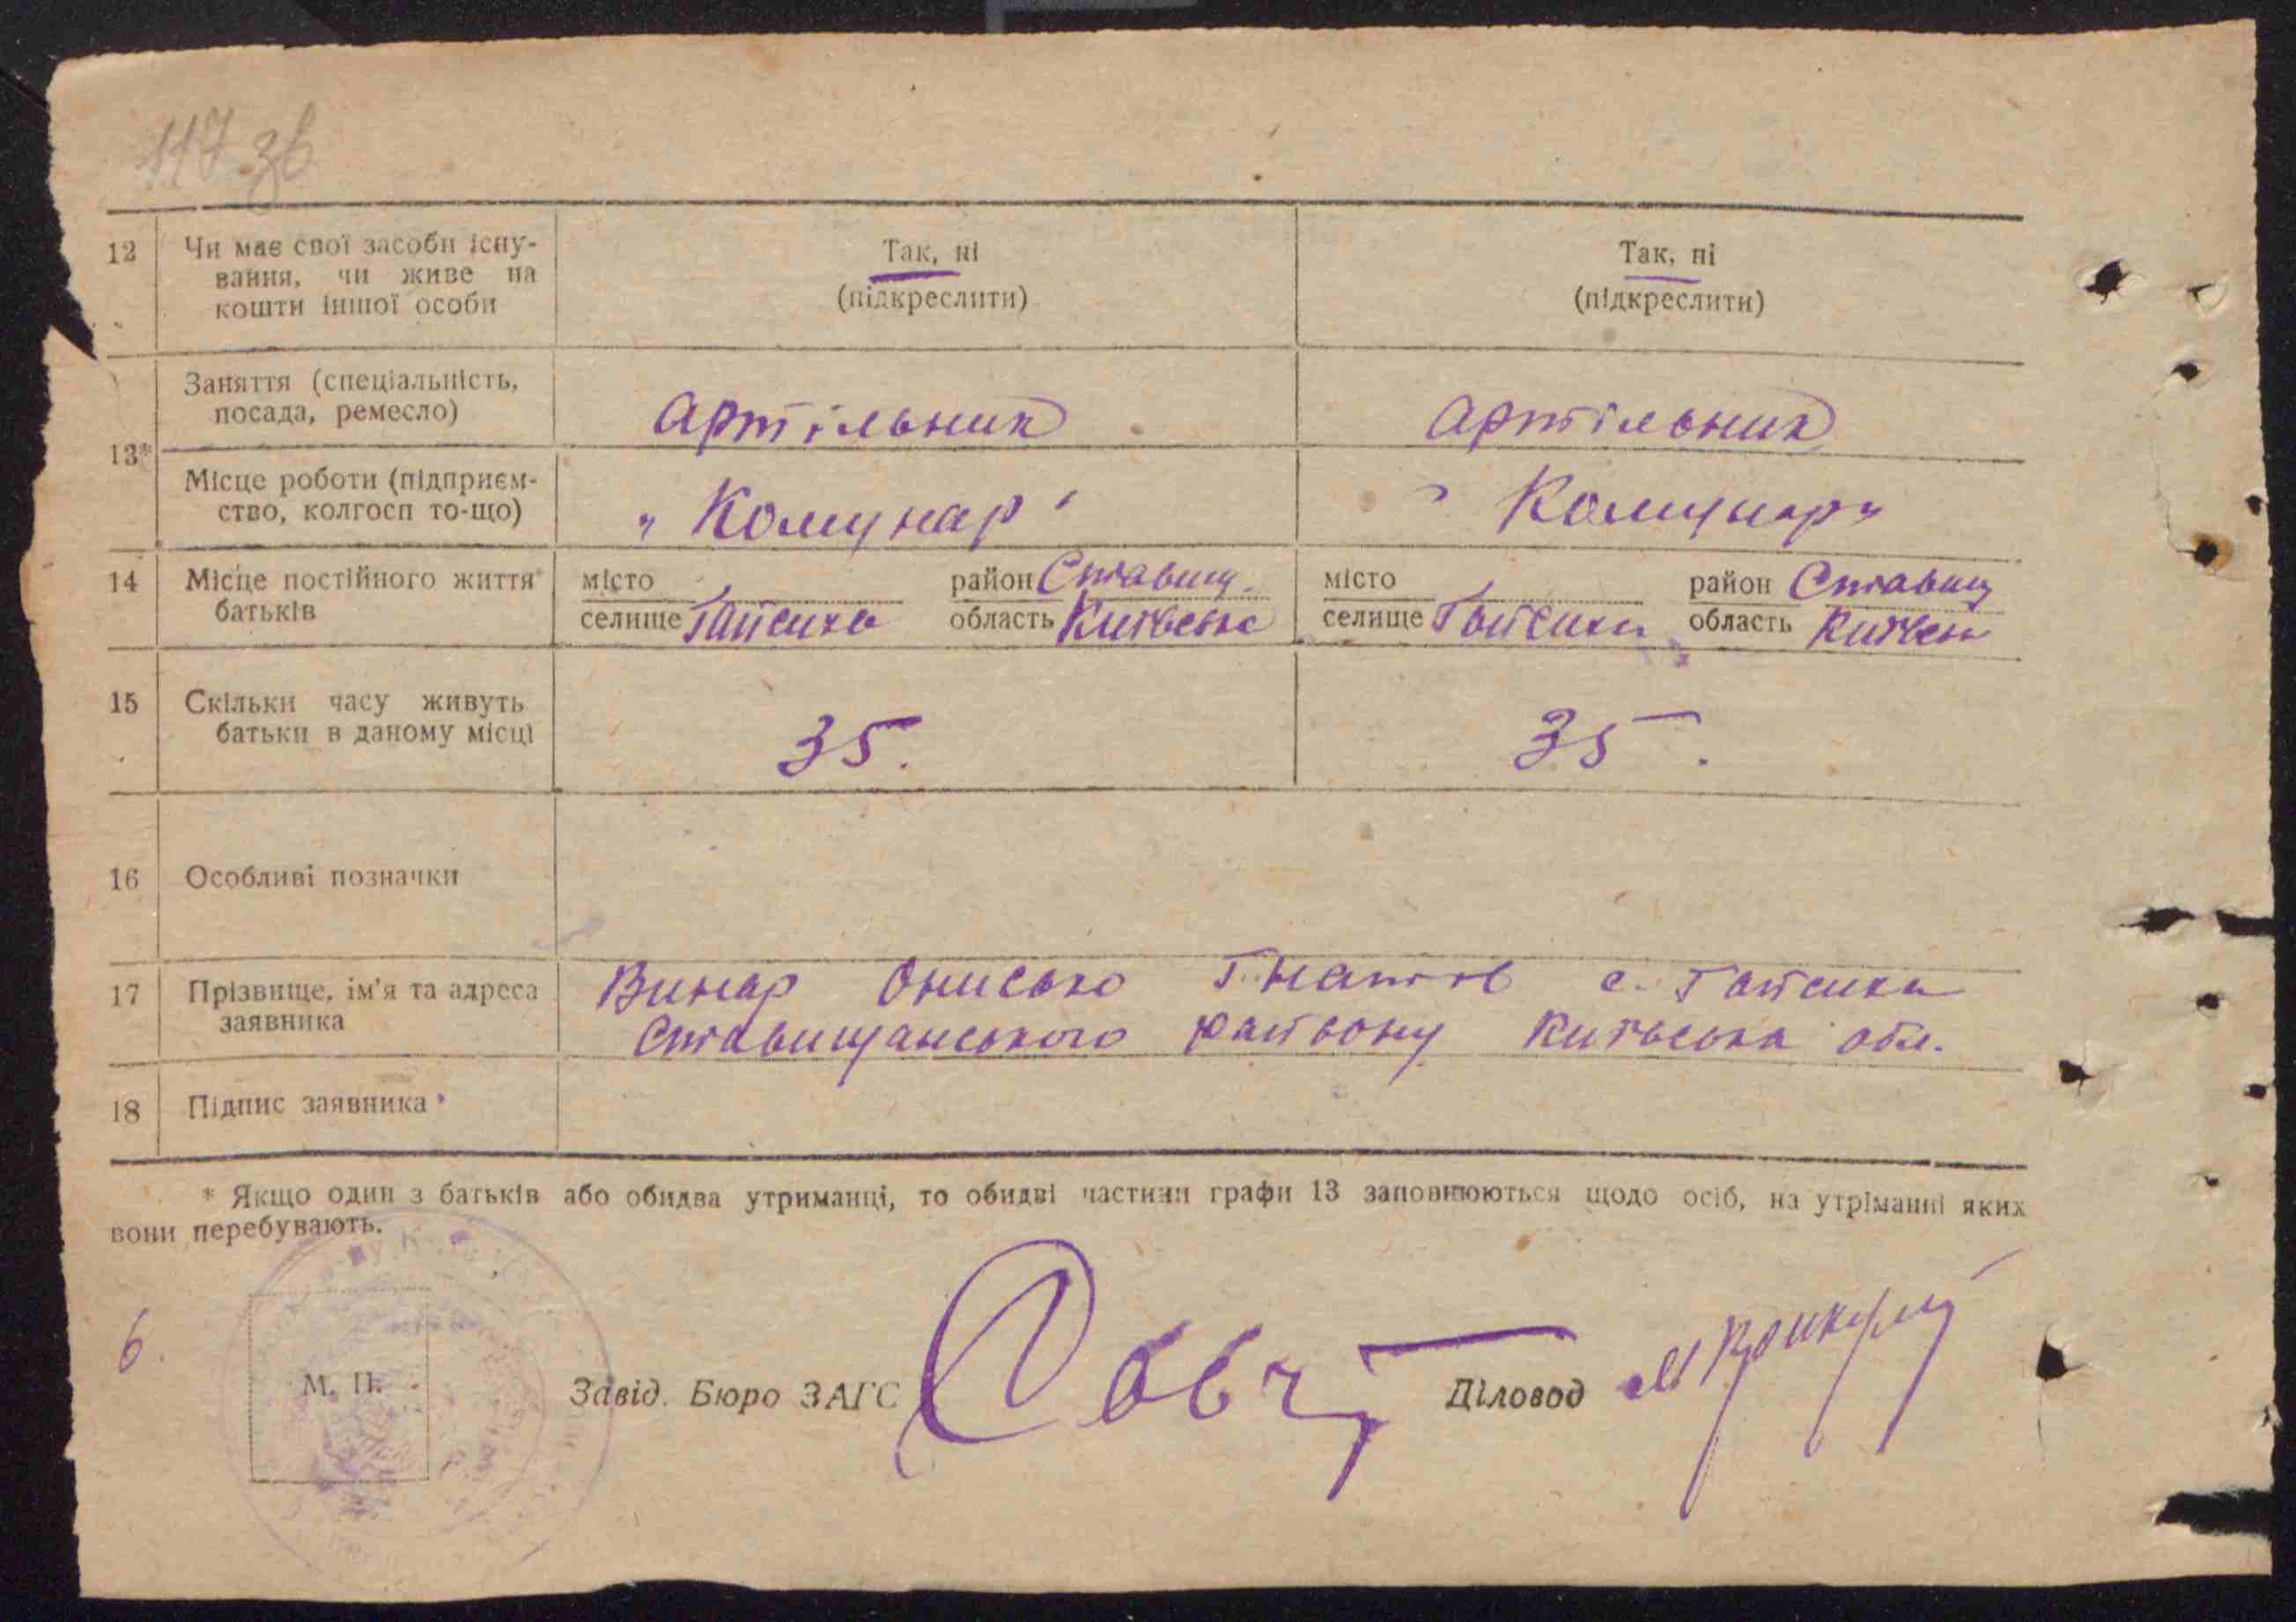 117 зв
12 Чи має свої засоби існу-
вання, чи живе на
кошти іншої особи
Так, ні
(підкреслити)
Так, ні
(підкреслити)
13* Заняття (спеціальність,
посада, ремесло)
Артільник
Артільник
Місце роботи (підприєм-
ство, колгосп то-що)
„ Комунар "
" Комунар"
14 Місце постійного життя
батьків
місто
селище Гайсиха
район Ставищ.
область Київська
місто
селище Гайсиха
район Ставищ
область Київськ
15 Скільки часу живуть
батьки в даному місці
35.
35.
16 Особливі позначки
17 Прізвище, ім'я та адреса
заявника
Винар Онисько Гнатов с. Гайсиха
Ставищанського району Київська обл.
18 Підпис заявника
* Якщо один з батьків або обидва утриманці, то обидві частини графи 13 заповнюються щодо осіб, на утріманні яких
вони перебувають.
6.
М. П.
Завід. Бюро ЗАГС
Діловод